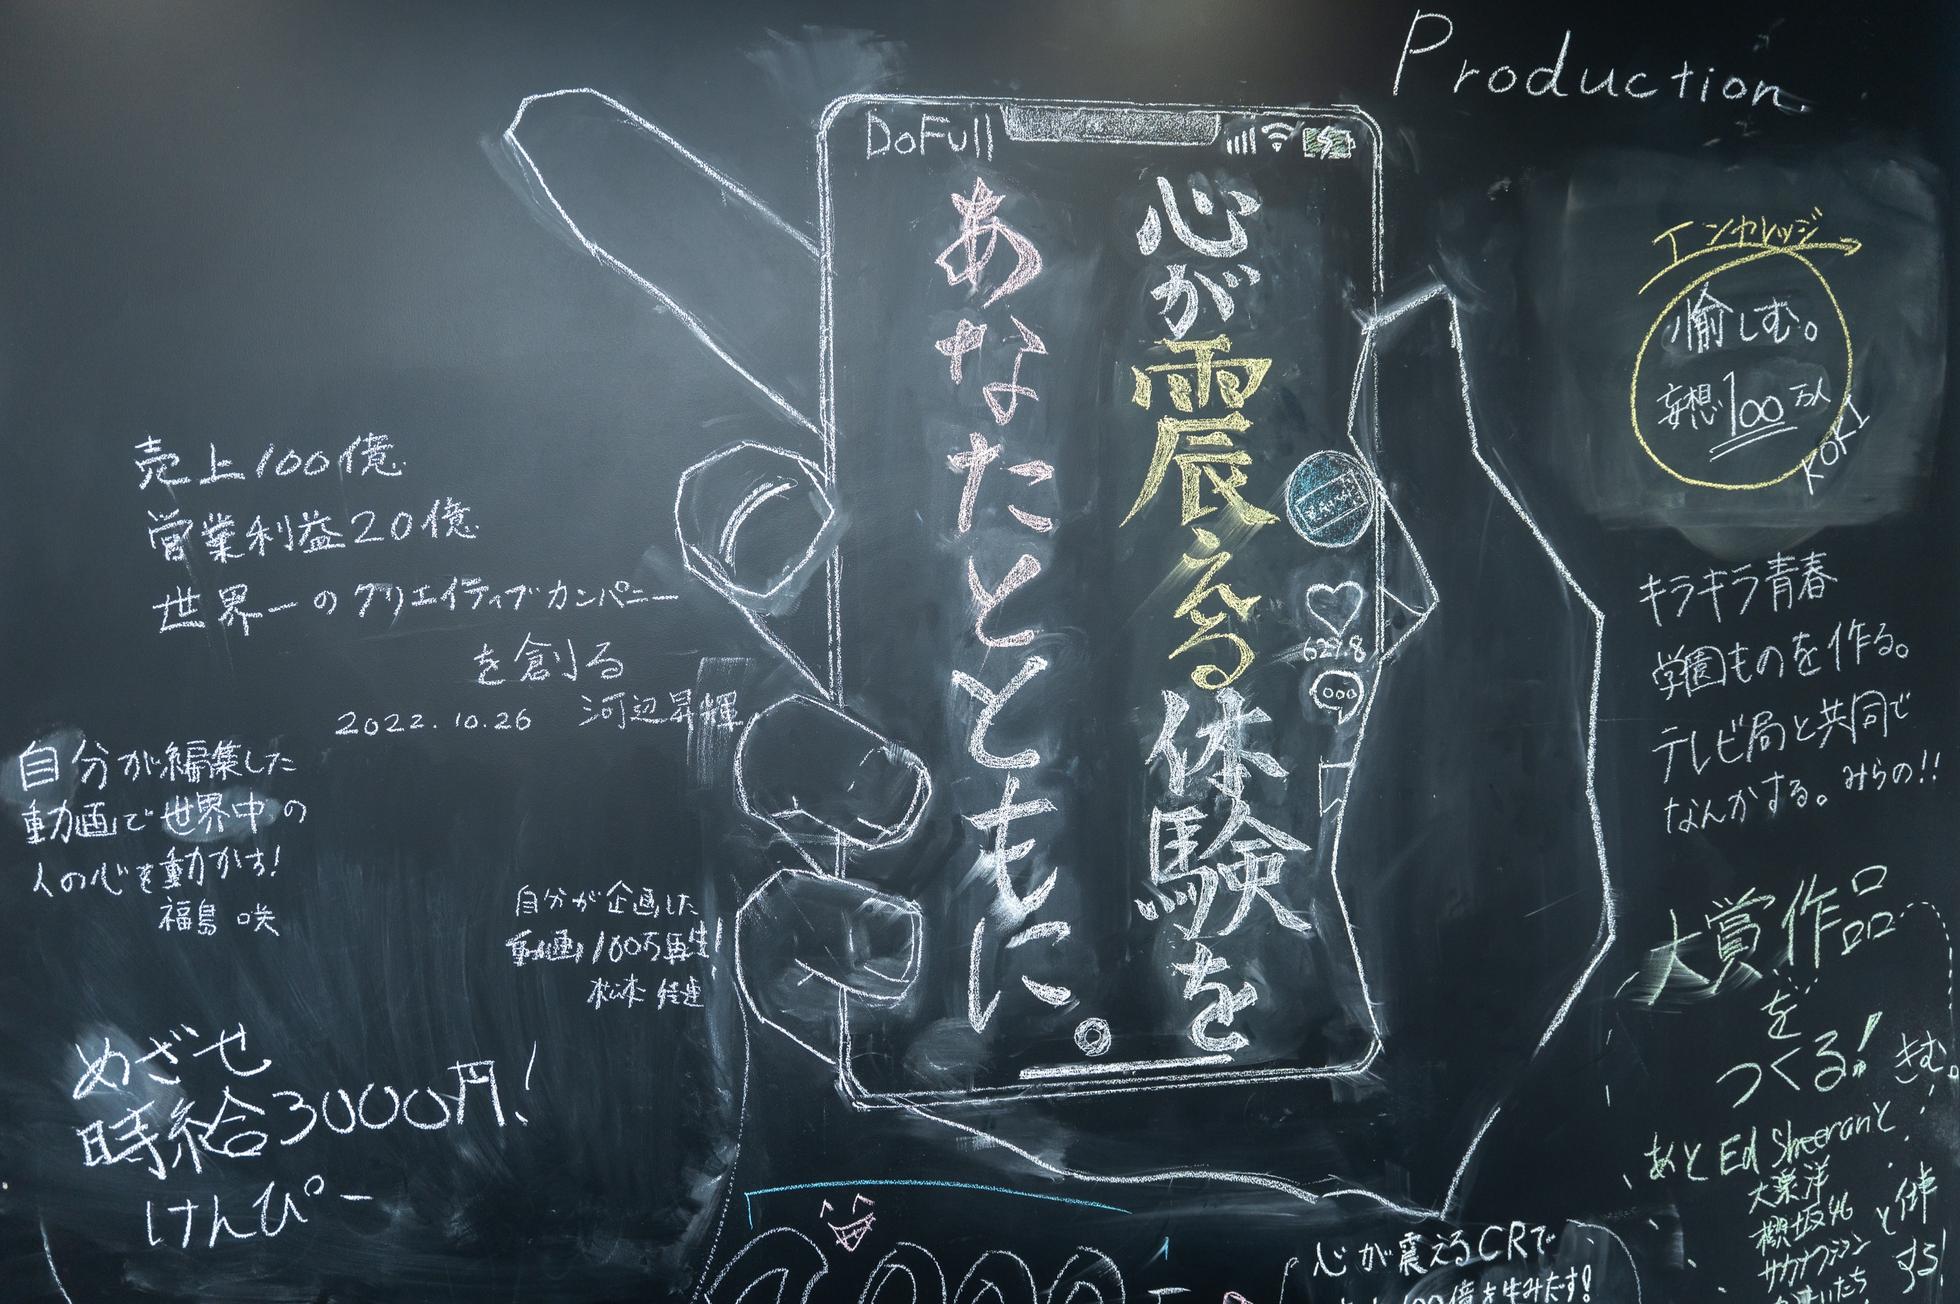 Production.
DoFull
心が震える体験を
あなたとともに。
627.8
エンカレッジ
愉しむ。
妄想100万人
KOKI
売上100億
営業利益20億
世界一のクリエイティブカンパニー
を創る
2022.10.26 河辺昇輝
自分が編集した
動画で世界中の
人の心を動かす!
福島 咲
自分が企画した
動画100万再生!
松本
めざせ
時給3000円!
けんぴー
キラキラ青春
学園ものを作る。
テレビ局と共同で
なんかする。みらの!!
大賞作品
を
つくる!
きむ。
あと Ed Sheeranと
大泉洋
櫻坂46
サカナクション
と仕事
する!
心が震えるCRで
100億を生みだす!